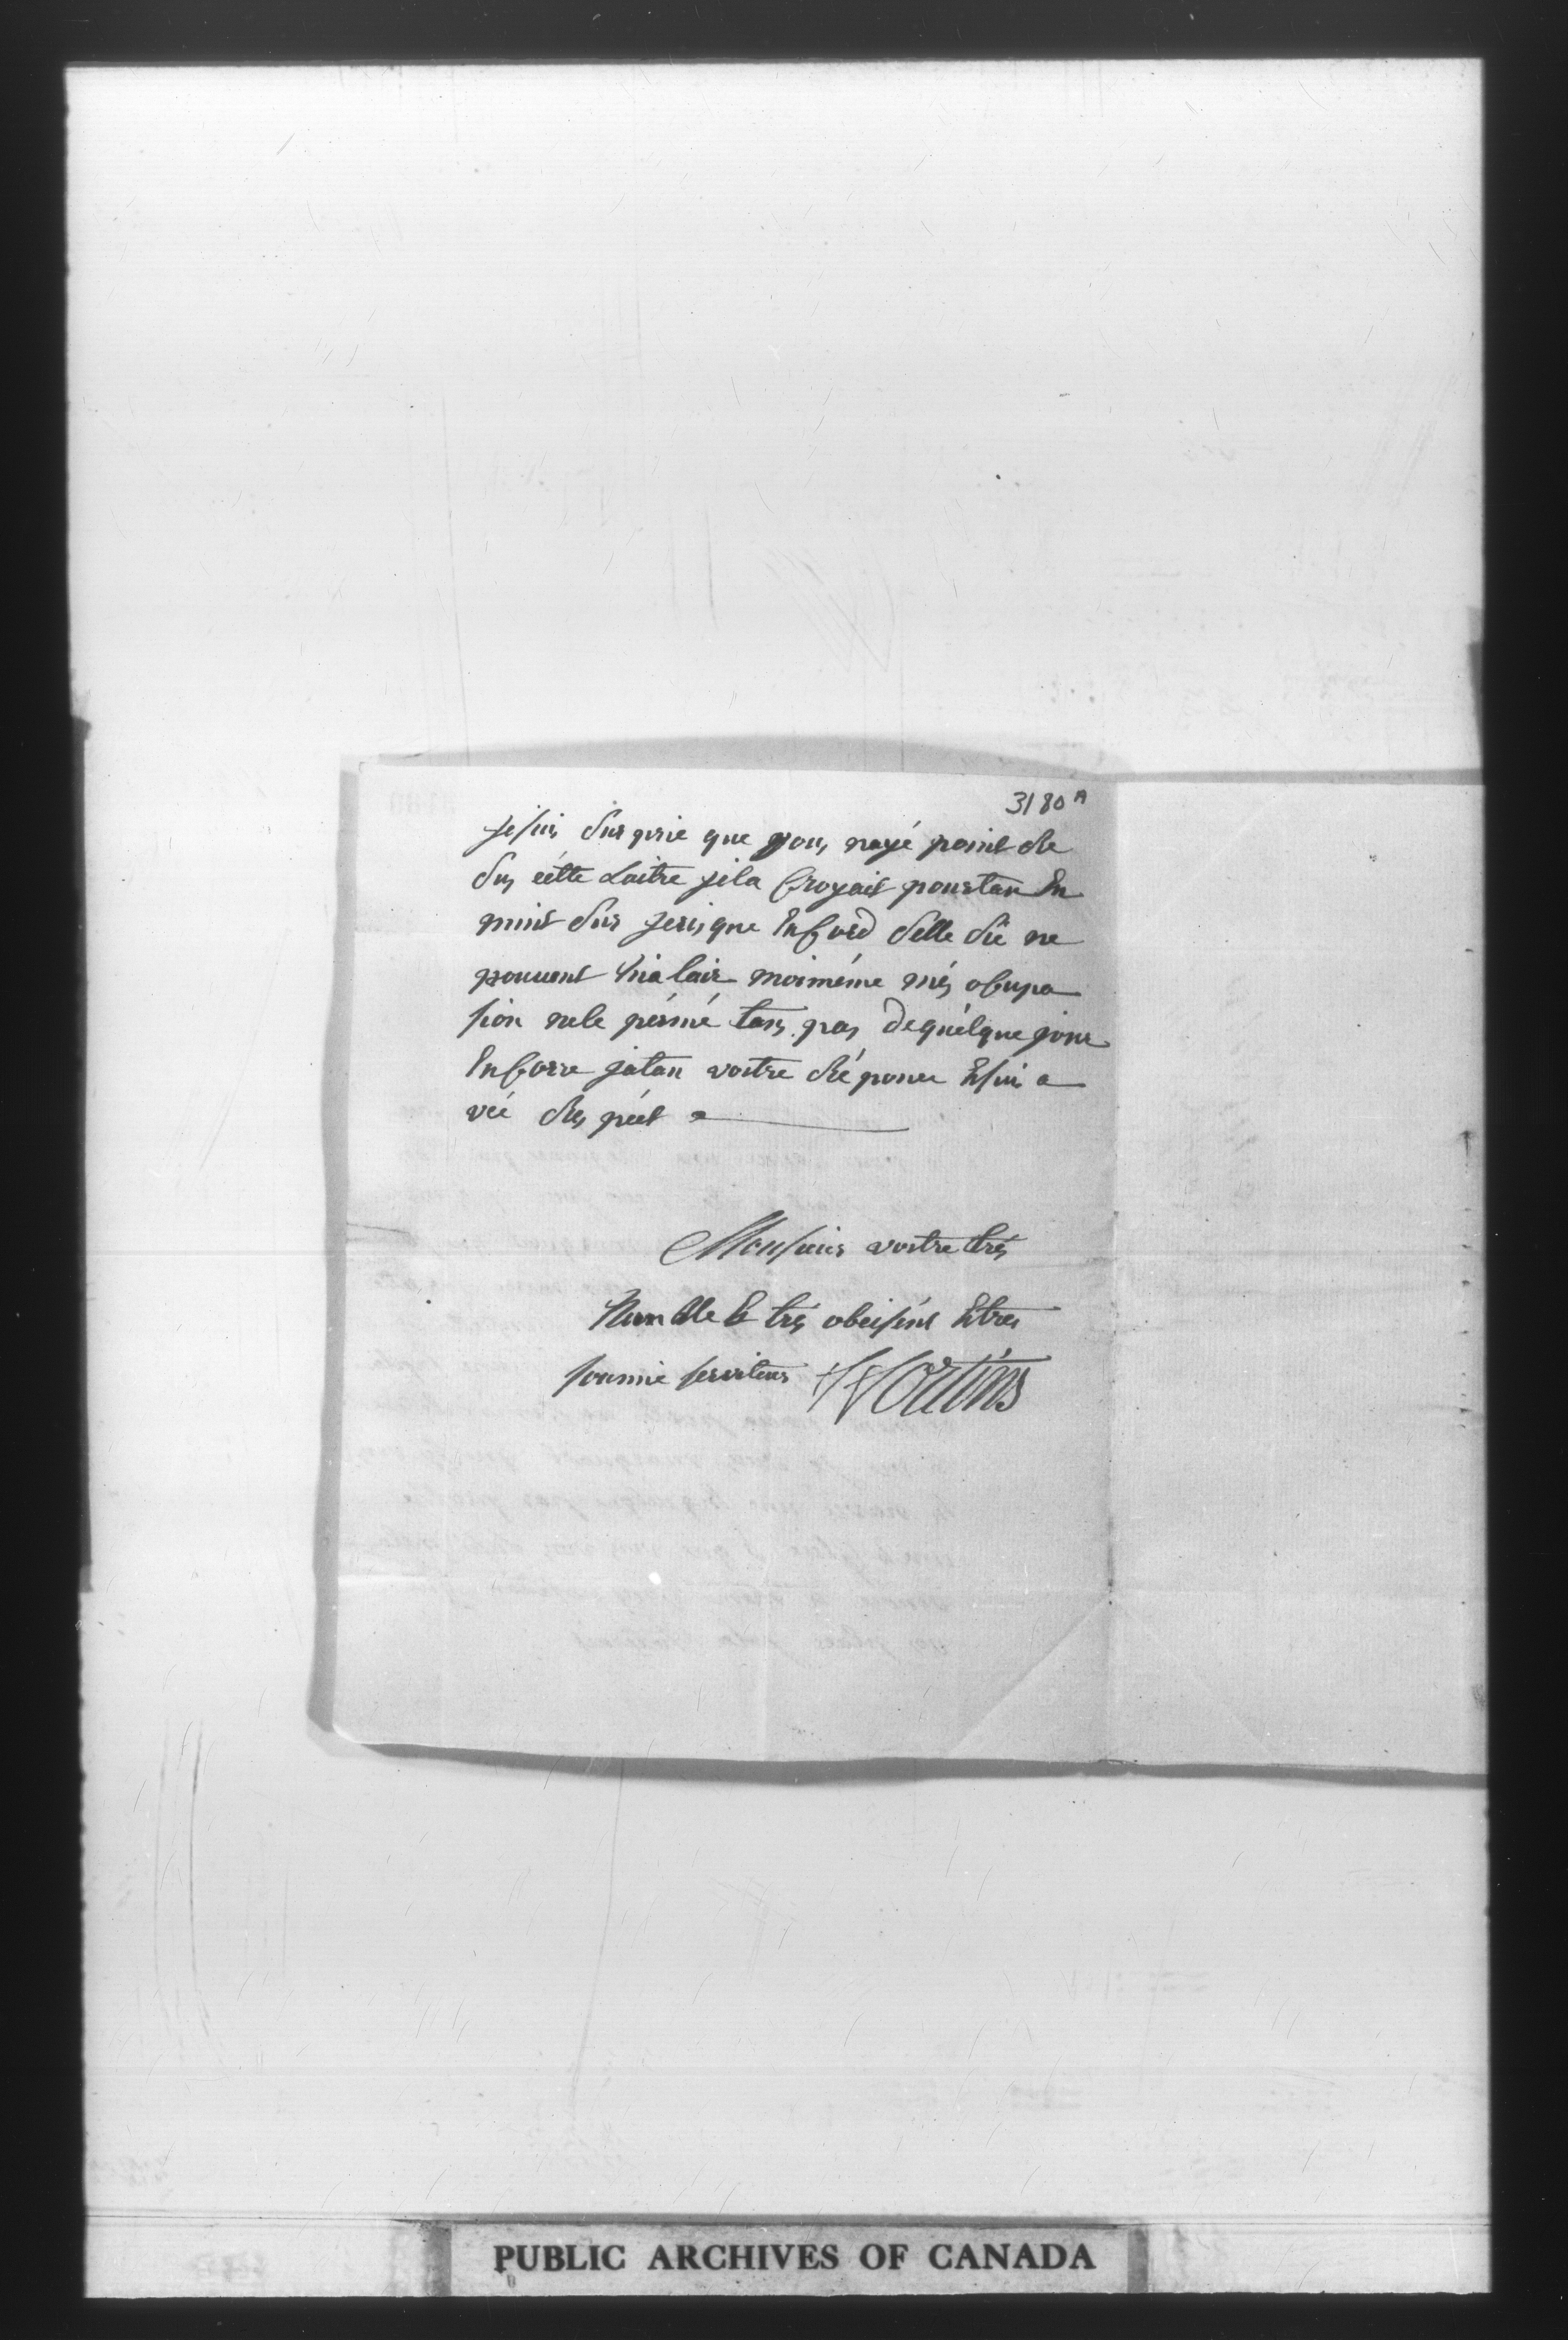 3180 A
je suis surprie que vous nayé point re
su cette Laitre jela Croyait pourtan En
mint sur jecris que Encord delle sie ne
pouvent Mialair moimême més ocupa
sion nele pérmé tans pas dequélque jour
Encorre jatan vostre réponce Esuis a
véé respéct
Monsieur vostre trés
humble E trés obeisént Etres
soumie serviteur Fortin
PUBLIC ARCHIVES OF CANADA